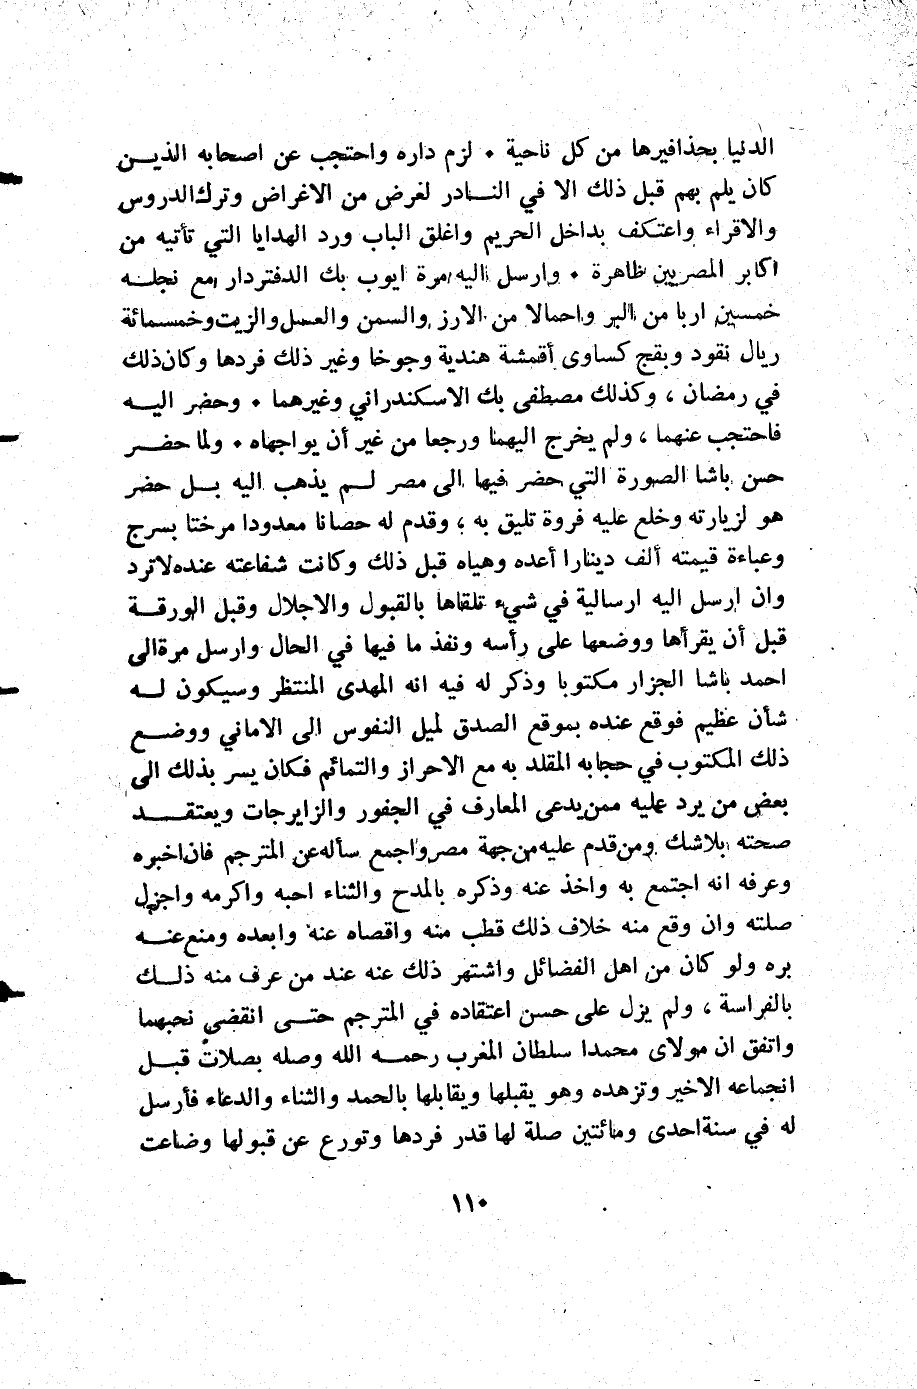 الدنيا بحذافيرها من كل ناحية ٠ لزم داره واحتجب عن اصحابه الذيــن
كان يلم بهم قبل ذلك الا في النــادر لغرض من الاغراض وترك الدروس
والاقراء واعتكف بداخل الحريم واغلق الباب ورد الهدايا التي تأتيه من
اكابر المصريين ظاهرة ٠ وارسل اليه مرة ايوب بك الدفتردار مع نجلــه
خمسين اربا من البر واحمالا من الارز والسمن والعسل والزيت وخمسمائة
ريال نقود وبقج كساوى أقمشة هندية وجوخا وغير ذلك فردها وكان ذلك
في رمضان ، وكذلك مصطفى بك الاسكندراني وغيرهما ٠ وحضر اليــه
فاحتجب عنهما ، ولم يخرج اليهما ورجعا من غير أن يواجهاه ٠ ولما حضــر
حسن باشا الصورة التي حضر فيها الى مصر لــم يذهب اليه بــل حضر
هو لزيارته وخلع عليه فروة تليق به ، وقدم له حصانا معدودا مرختا بسرج
وعباءة قيمته ألف دينارا أعده وهياه قبل ذلك وكانت شفاعته عنده لا ترد
وان ارسل اليه ارسالية في شيء تلقاها بالقبول والاجلال وقبل الورقــة
قبل أن يقرأها ووضعها على رأسه ونفذ ما فيها في الحال وارسل مرة الى
احمد باشا الجزار مكتوبا وذكر له فيه انه المهدى المنتظر وسيكون لــه
شأن عظيم فوقع عنده بموقع الصدق لميل النفوس الى الاماني ووضــع
ذلك المكتوب في حجابه المقلد به مع الاحراز والتمائم فكان يسر بذلك الى
بعض من يرد عليه ممن يدعى المعارف في الجفور والزايرجات ويعتقــد
صحته بلاشك ومن قدم عليه من جهة مصر واجمع سأله عن المترجم فان اخبره
وعرفه انه اجتمع به واخذ عنه وذكره بالمدح والثناء احبه واكرمه واجزل
صلته وان وقع منه خلاف ذلك قطب منه واقصاه عنه وابعده ومنع عنــه
بره ولو كان من اهل الفضائل واشتهر ذلك عنه عند من عرف منه ذلــك
بالفراسة ، ولم يزل على حسن اعتقاده في المترجم حتــى انقضى نحبهما
واتفق ان مولاى محمدا سلطان المغرب رحمــه الله وصله بصلات قبــل
انجماعه الاخير وتزهده وهو يقبلها ويقابلها بالحمد والثناء والدعاء فأرسل
له في سنة احدى ومائتين صلة لها قدر فردها وتورع عن قبولها وضاعت
١١٠